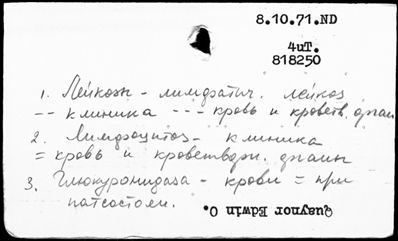 8.10.71.ND
4uT.
818250
1. Лейкоз - лимфатич. лейкоз
-- клиника --- кровь и кроветв. органы
2. Лимфоцитоз - клиника
= кровь и кроветворн. органы
3. Глюкуронидаза - крови = при
патсостоян.
Quaynor Edwin O.